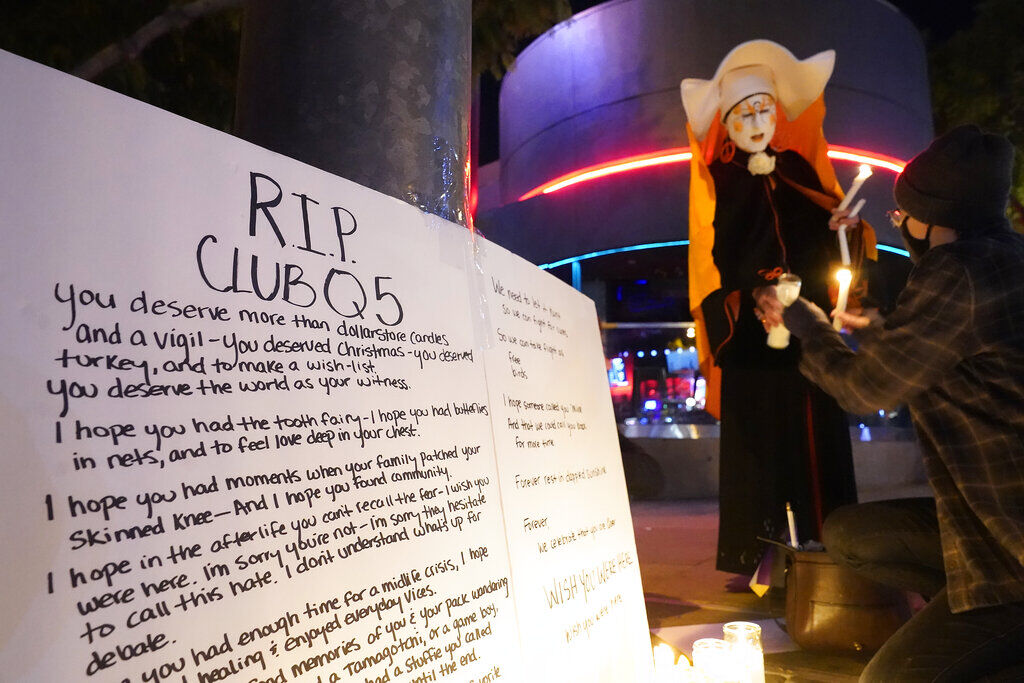 R.I.P.
CLUB Q 5
You deserve more than dollarstore candles
and a vigil - you deserved Christmas - you deserved
turkey, and to make a wish-list.
You deserve the world as your witness.
I hope you had the tooth fairy - I hope you had butterflies
in nets, and to feel love deep in your chest.
I hope you had moments when your family patched your
skinned knee - And I hope you found community.
I hope in the afterlife you can't recall the fear - I wish you
were here. i'm sorry you're not - i'm sorry they hesitate
to call this hate. I don't understand what's up for
debate.
you had enough time for a midlife crisis, I hope
healing & enjoyed everyday vices.
memories of you & your pack wandering
a Tamagotchi, or a game boy,
had a stuffie you called
until the end.
We need to let it
so we can fight for
So we can take flight as
free
birds
I hope someone called you
And that we could call you
for more time
Forever rest in dappled sunshine
Forever,
We celebrate that you are
WISH YOU WERE HERE
wish you were here